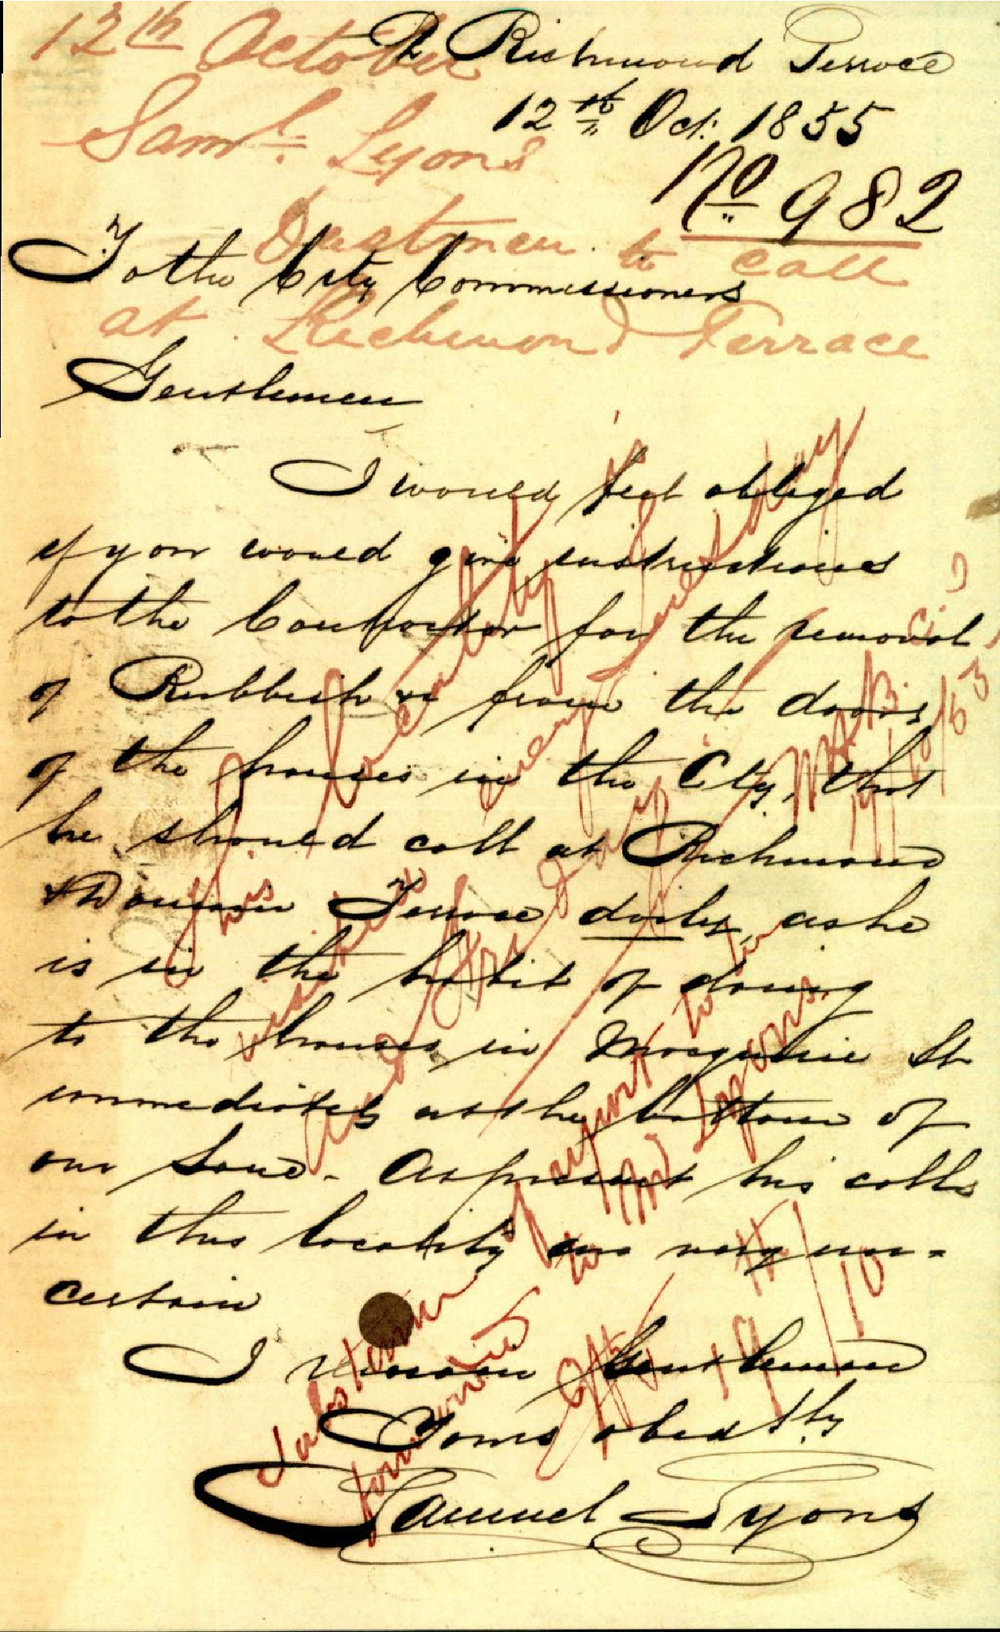 2 Richmond Terrace
12th Oct: 1855
No 982
12th October
Saml. Lyons
Dustmen to call
at Richmond Terrace
To the City Commissioners
Gentlemen
I would feel obliged
if you would give instructions
to the Contractor for the removal
of Rubbish &c from the doors
of the houses in the City, that
he should call at Richmond
& Terrace daily, as he
is in the habit of doing
to the houses in Macquarie St
immediately at the bottom of
our Land. At present his calls
in this locality are very un-
certain
I remain Gentlemen
Yours obedtly
Samuel Lyons
This locality is
visited every Tuesday
and Friday
19/10/55
report to be
to Mr Lyons
19/10